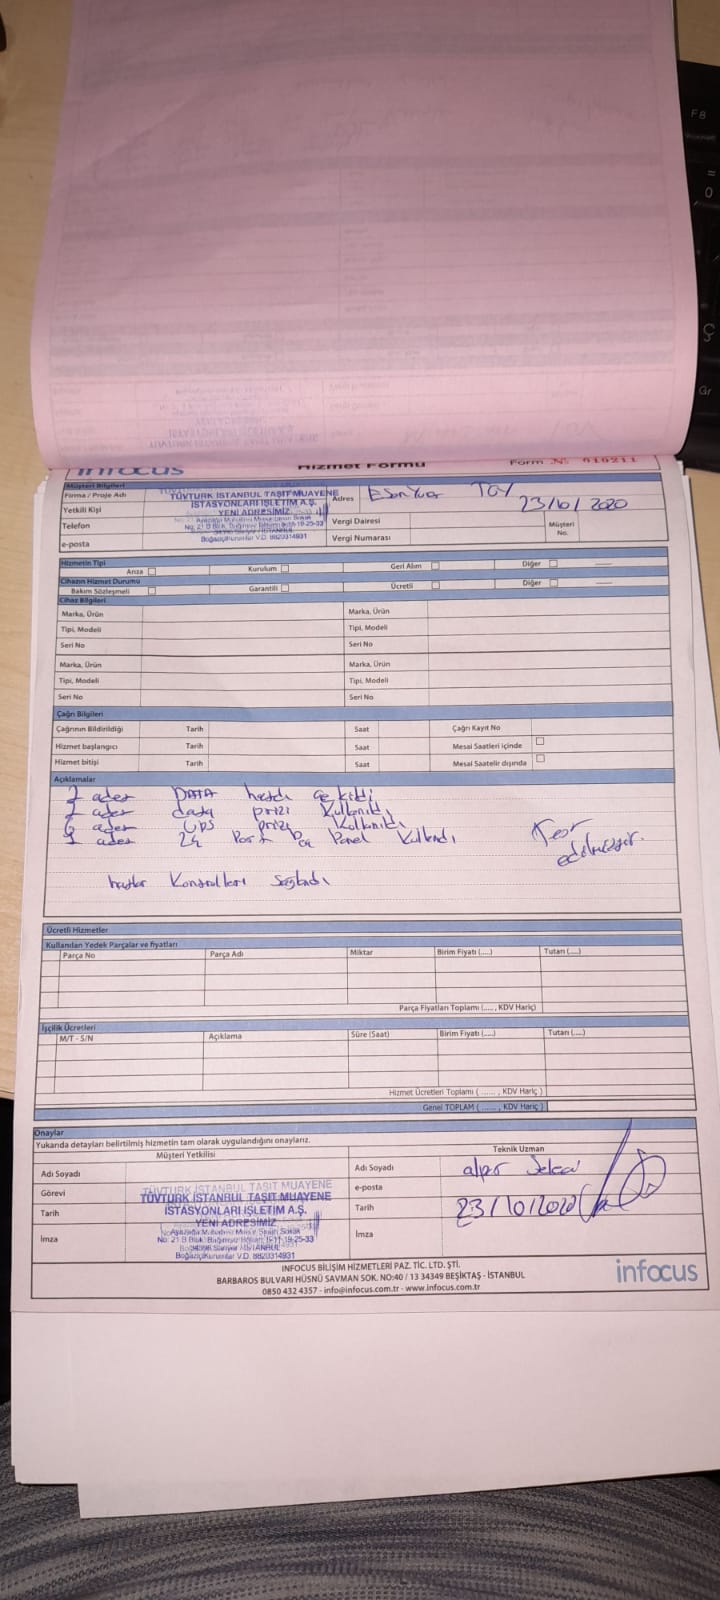 infocus
Hizmet Formu
Form No 010211
Müşteri Bilgileri
Firma / Proje Adı
TÜVTURK İSTANBUL TAŞIT MUAYENE
İSTASYONLARI İŞLETİM A.Ş.
YENİ ADRESİMİZ
Boğaziçi Kurumlar V.D. 8820314931
Adres Esenyurt
23/10/2020
Yetkili Kişi
Telefon
Vergi Dairesi
Müşteri No.
e-posta
Vergi Numarası
Hizmetin Tipi
Arıza Kurulum Geri Alım Diğer
Cihazın Hizmet Durumu
Bakım Sözleşmeli Garantili Ücretli Diğer
Cihaz Bilgileri
Marka, Ürün Marka, Ürün
Tipi, Modeli Tipi, Modeli
Seri No Seri No
Marka, Ürün Marka, Ürün
Tipi, Modeli Tipi, Modeli
Seri No Seri No
Çağrı Bilgileri
Çağrının Bildirildiği Tarih Saat Çağrı Kayıt No
Hizmet başlangıcı Tarih Saat Mesai Saatleri içinde
Hizmet bitişi Tarih Saat Mesai Saatelir dışında
Açıklamalar
adet DATA hattı çekildi
adet data prizi kullanıldı
6 adet UPS prizi kullanıldı
1 adet 24 Port Panel kullandı
Test edilmiştir.
hatlar Kontrolleri Sağlandı
Ücretli Hizmetler
Kullanılan Yedek Parçalar ve fiyatları
Parça No Parça Adı Miktar Birim Fiyatı (....) Tutarı (....)
Parça Fiyatları Toplamı (...... , KDV Hariç)
İşçilik Ücretleri
M/T - S/N Açıklama Süre (Saat) Birim Fiyatı (....) Tutarı (....)
Hizmet Ücretleri Toplamı ( ...... , KDV Hariç )
Genel TOPLAM ( ...... , KDV Hariç )
Onaylar
Yukarıda detayları belirtilmiş hizmetin tam olarak uygulandığını onaylarız.
Müşteri Yetkilisi Teknik Uzman
Adı Soyadı Adı Soyadı
Görevi e-posta
Tarih Tarih 23/10/2020
İmza İmza
TÜVTURK İSTANBUL TAŞIT MUAYENE
İSTASYONLARI İŞLETİM A.Ş.
YENİ ADRESİMİZ
Boğaziçi Kurumlar V.D. 8820314931
INFOCUS BİLİŞİM HİZMETLERİ PAZ. TİC. LTD. ŞTİ.
BARBAROS BULVARI HÜSNÜ SAVMAN SOK. NO:40 / 13 34349 BEŞİKTAŞ - İSTANBUL
0850 432 4357 - info@infocus.com.tr - www.infocus.com.tr
infocus